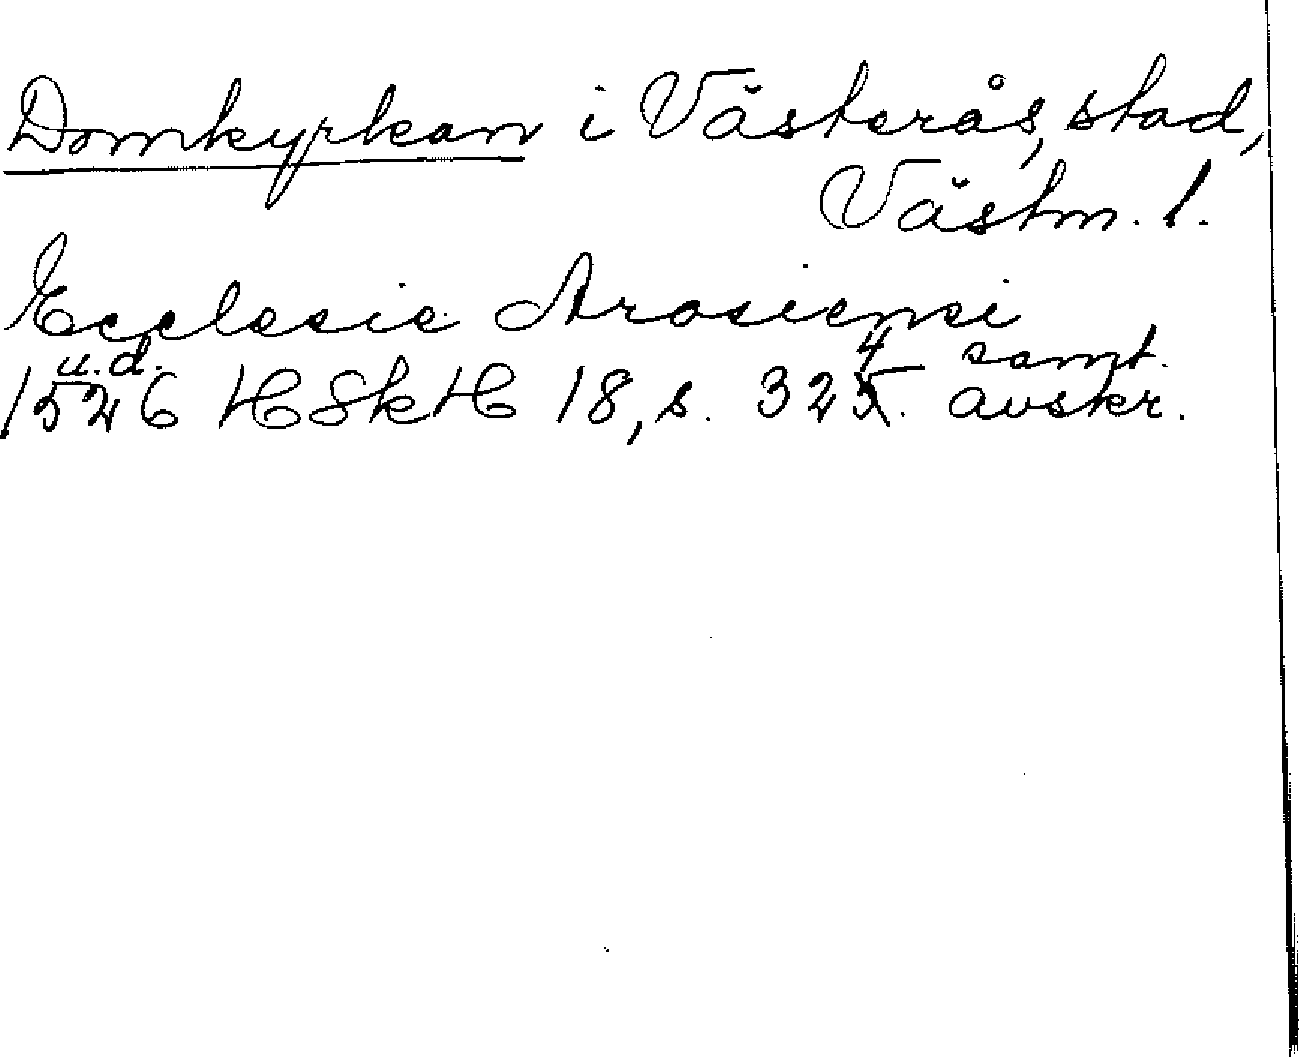 Domkyrkan i Västerås, stad,
Västm. l.
Ecclesie Arosiensi
u.d. 4 samt.
1526 HSkH 18, s. 325. avskr.